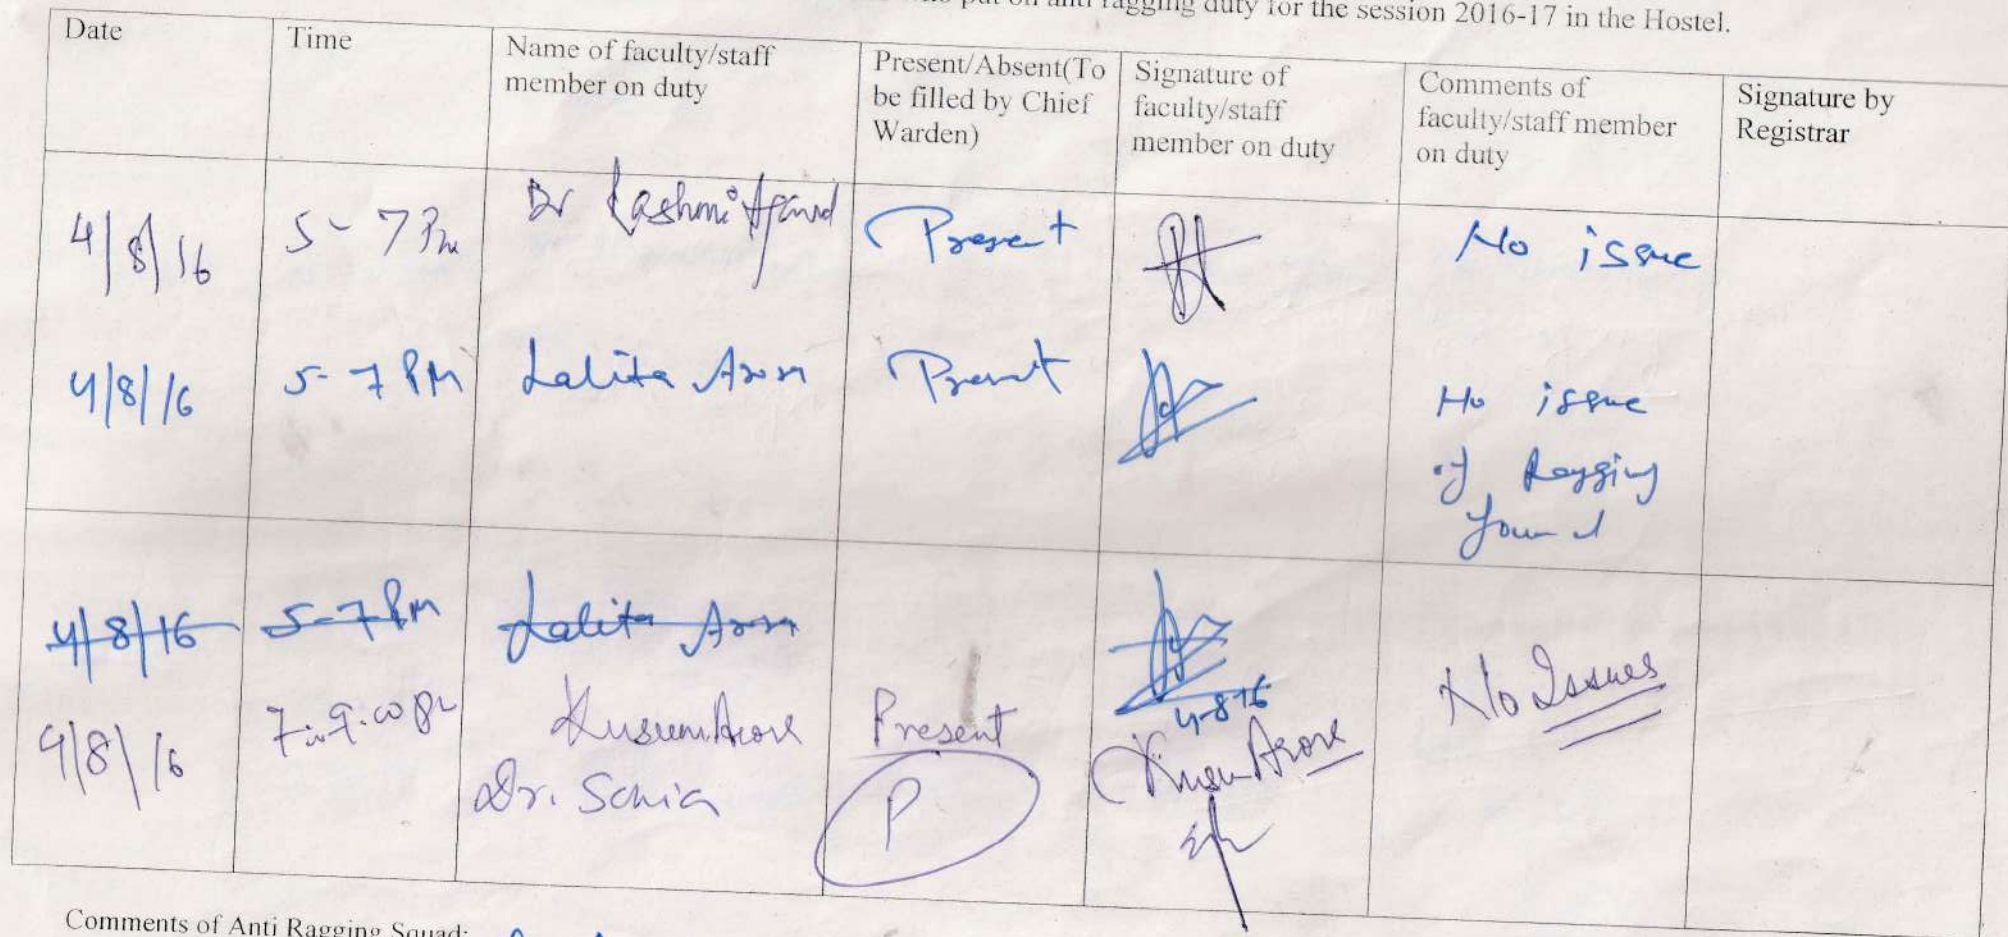 put on anti ragging duty for the session 2016-17 in the Hostel.
Date
Time
Name of faculty/staff
member on duty
Present/Absent(To
be filled by Chief
Warden)
Signature of
faculty/staff
member on duty
Comments of
faculty/staff member
on duty
Signature by
Registrar
4/8/16
5-7 Pm
Dr Rashmi Agarwal
Present
No issue
4/8/16
5-7 PM
Lalita Arora
Present
No issue
of Ragging
found
4/8/16
5-7 PM
Lalita Arora
4-8-16
4/8/16
Kusum Arora
Present
Kusum Arora
No Issues
Dr. Sonia
P
Comments of Anti Ragging Squad: